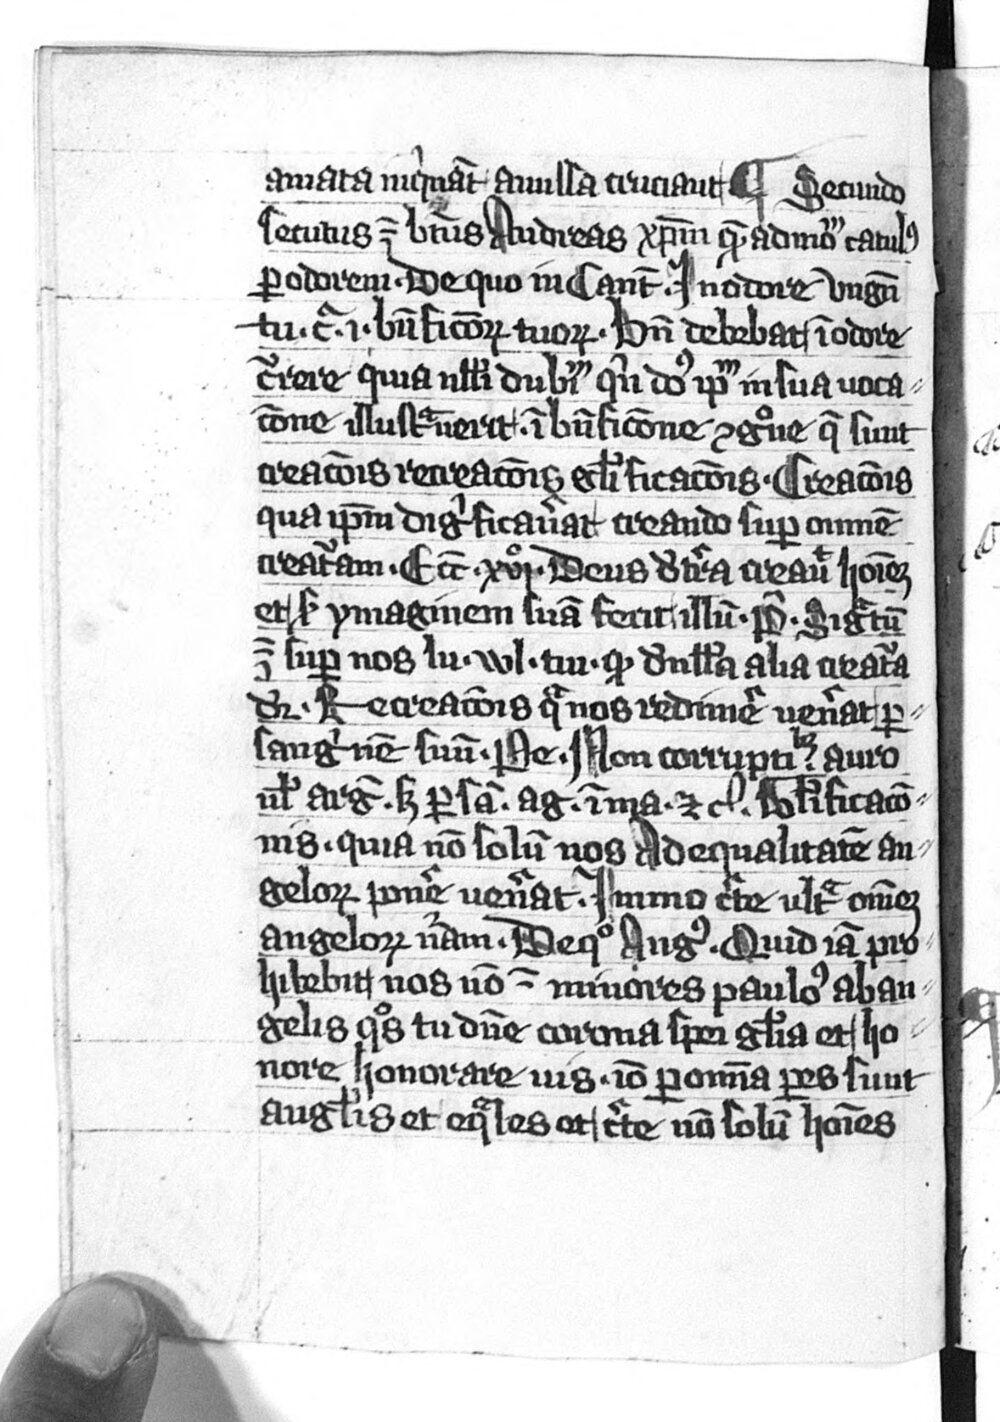 amata inq͛nāt amissa cruciant ¶ Secundo
secutus ē bt̄us Andreas xp̄m ꝓ ad modū catulꝰ
ꝑ odorem. De quo in Cant̄. In odore vngn̄
tu. c̄. i. bn̄ficōꝝ tuoꝝ. Bn̄ debebat ī odore
c̄rere quia nll̄i dubiū qn̄ dō ip̄m in sua uoca-
cōne illustrauerit. ī bn̄ficōne ꝯgrue q̄ sunt
creacōis recreacōis glīficacōis. Creacōis
qua ip̄m dignificau͛at creando sup omnē
creat͛am. Ecc̄. xvij. Deus de tr̄a creau͛ hoīeꝫ
et s͛ ymaginem suā fecit illū. p̄s. Signatū
ē sup nos lu. vul. tu. qꝫ de null̄a alia creat͛a
dr̄. Recreacōis qͣ nos redimē uen͛at ꝑ
sanguinē suū. Pe. Non corruptibꝫ auro
ul̄ arḡ. sꝫ p̄sā. ag. ī ma. ⁊ cͦ. Glīficacō-
nis. quia nō solū nos ad equalitatē an-
geloꝝ ponē uen͛at. Immo c͛te ult͛ om̄eꝫ
angeloꝝ nr̄am. De qͦ Augꝰ. Quid iā pro-
hibebit nos nō ē minores pauloꝰ ab an-
gelis qͦs tu dn̄e corona spei glīa et ho
nore honorare uis. iō ꝑ om̄ia pēs sunt
angl̄is et eqͣles et c͛te nō solū hoīes